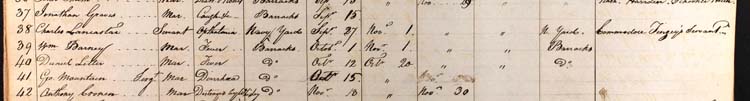 37 Jonathan Graves Mar. Cough &c Barracks Sept. 15
38 Charles Lancaster Servant Opthalmia Navy Yard Sept. 27 Nov. 1. N. Yard Commodore Tingey's Servant
39 Wm Barney Mar. Fever Barracks Octob. 1 Nov. 1. " " Barracks
40 Daniel Letter Mar. Fever Do Oct 12 Octo 20. " " Do
41 Geo. Mountain Sergt Mar Diarrhea Do Oct 15
42 Anthony Mar Do Nov. 10 " Nov. 30